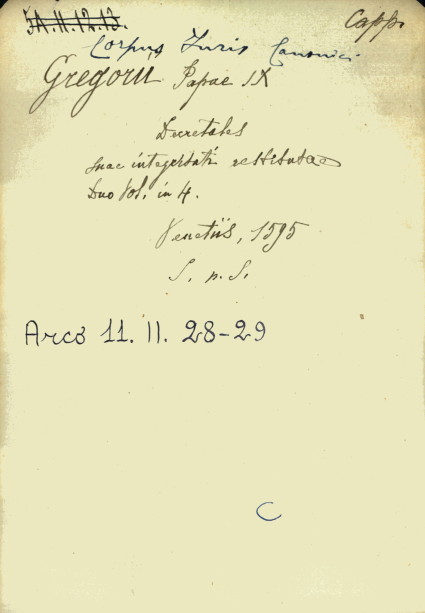 5A.II.12.13. Capp.
Corpus Iuris Canonici
Gregorii Papae IX
Decretales
suae integritati restitutae
Duo Vol. in 4.
Venetiis, 1595
S. n. S.
Arco 11. II. 28-29
C